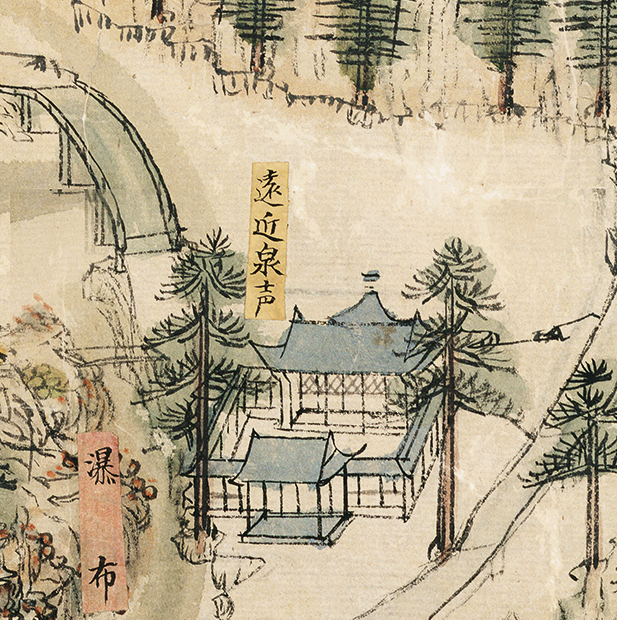 遠近泉声
瀑布